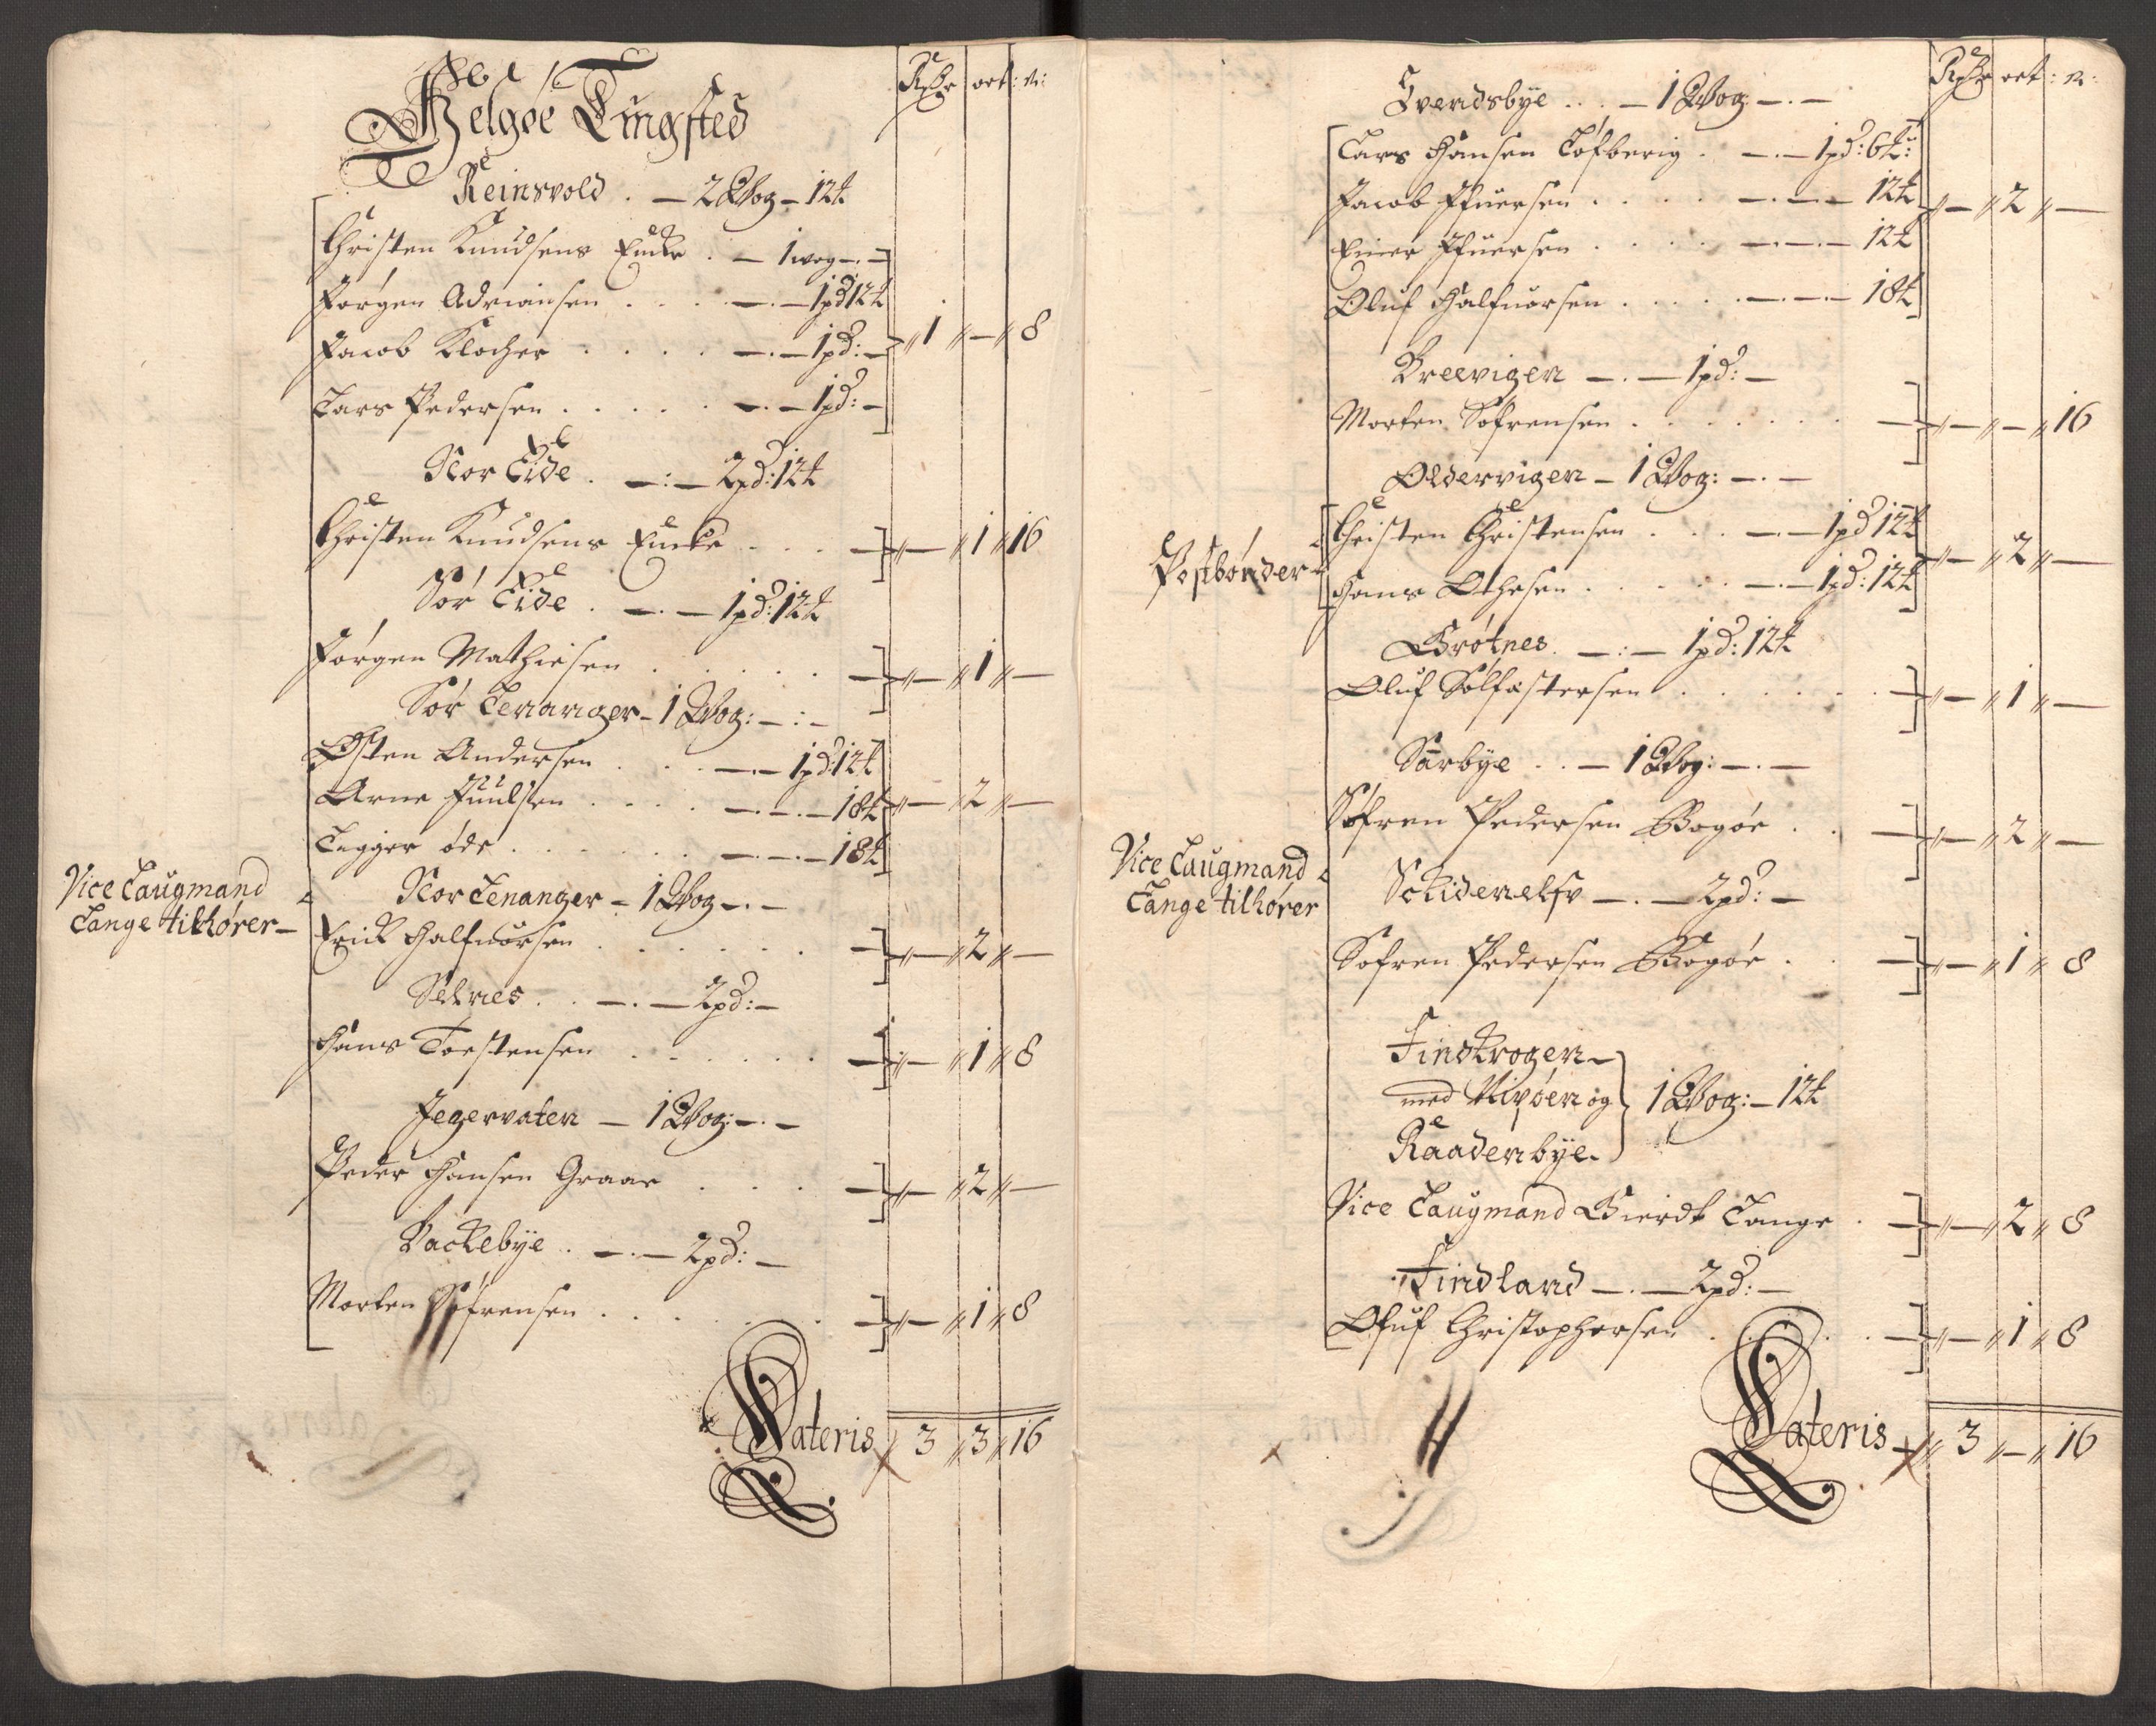 Helgøe Tingsted
Rdr ort: s:
Reinsvold . — 2 Wog — 12 ℔
Christen Knudsens Encke . — 1 wog —.—
Jørgen Adriansen . . . —.— 1 pd 12 ℔
Jacob Klocher . . . . —.— 1 pd: — 1 — 8
Lars Pedersen . . . . . —.— 1 pd: —
Nor Eide . —:— 2 pd: 12 ℔
Christen Knudsens Encke . . . — — 1 16
Sør Eide . —.— 1 pd: 12 ℔
Jørgen Mathiesen . . . . . — — 1 —
Sør Lenanger — 1 Wog: —:—
Østen Andersen . . . —.— 1 pd 12 ℔
Arne Juulsen . . . . —.—.— 18 ℔ — 2 —
Legger øde . . . . . . —.—.— 18 ℔
Vice Laugmand
Lange tilhører —
Nor Lenanger — 1 Wog —.—
Erick Halfuorsen . . . . . . — — 2 —
Selnes . . —.— 2 pd: —
Hans Torstensen . . . . . . — — 1 8
Jegervaten — 1 Wog: —.—
Peder Hansen Graae . . . — — 2 —
Backebye . —.— 2 pd: —
Morten Søfrensen . . . . . — — 1 8
Lateris 3 3 16
Rdr ort: s:
Svendsbye . . . — 1 Wog —.—
Lars Hansen Løfberig . —.— 1 pd: 6 ℔:
Jacob Ifuersen . . . . —.—.— 12 ℔ — 2 —
Einer Ifuersen . . . . —.—.— 12 ℔
Oluf Halfuorsen . . . . . —.—.— 18 ℔
Breevigen —.— 1 pd: —
Morten Søfrensen . . . . . . . — — — 16
Oldervigen — 1 Wog: —.—
Postbønder
Christen Christensen . . . —.— 1 pd 12 ℔
Hans Othesen . . . . . —.— 1 pd: 12 ℔ — 2 —
Grøtnes . —:— 1 pd: 12 ℔
Oluf Sølfastersen . . . . . . — — 1 —
Sarbye . . — 1 Wog: —.—
Søfren Pedersen Bogøe . . — — 2 —
Vice Laugmand
Lange tilhører
Schidenelfv —.— 2 pd: —
Søfren Pedersen Bogøe . . — — 1 8
Findkrogen —
med Nivøen og 1 Wog: — 12 ℔
Raadenbye —
Vice Laugmand Gierdt Lange . — — 2 8
Findland —.— 2 pd: —
Oluf Christophersen . . . . . — — 1 8
Lateris — 3 — 16